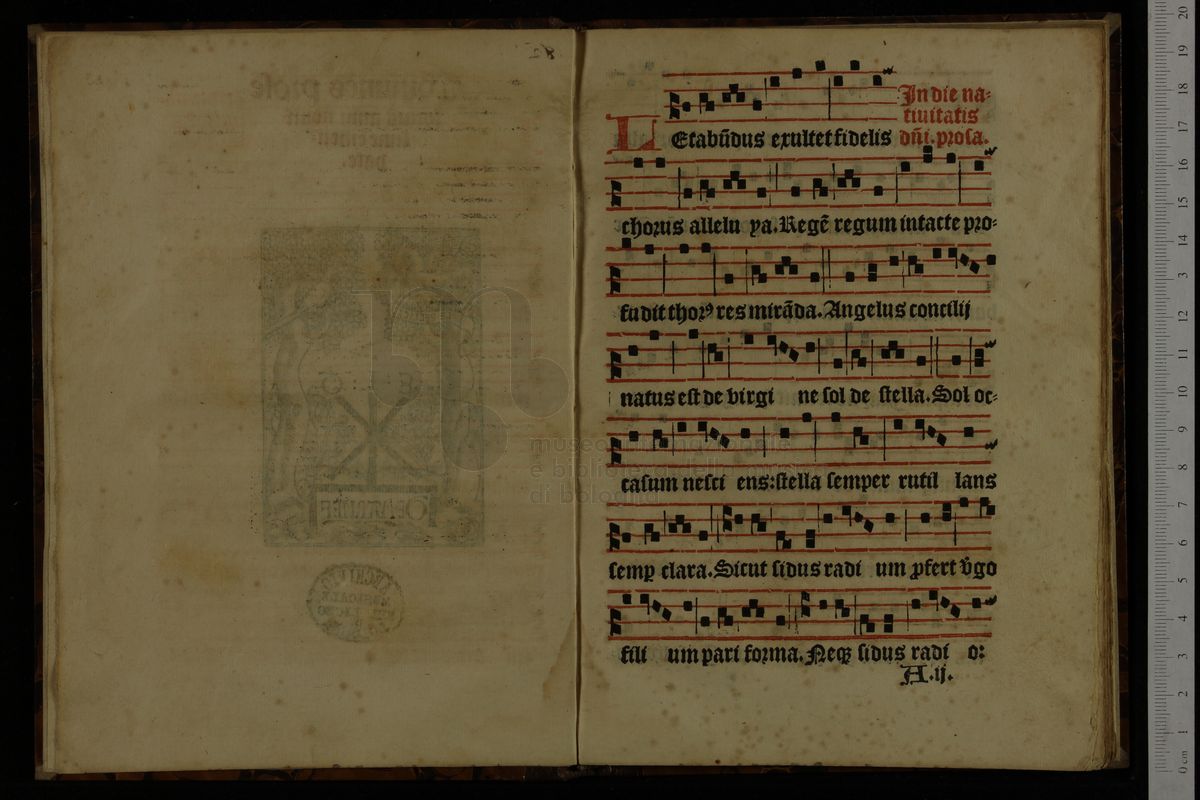 In die na-
tiuitatis
Letabūdus exultet fidelis dn̄i. prosa.
chorus allelu ya. Regē regum intacte pro-
fudit thorꝰ res mirāda. Angelus concilij
natus est de virgi ne sol de stella. Sol oc-
casum nesci ens: stella semper rutil lans
semꝑ clara. Sicut sidus radi um ꝓfert v̄go
fili um pari forma. Neqꝫ sidus radi o:
A.ij.
museo internazionale
e biblioteca della musica
di bologna